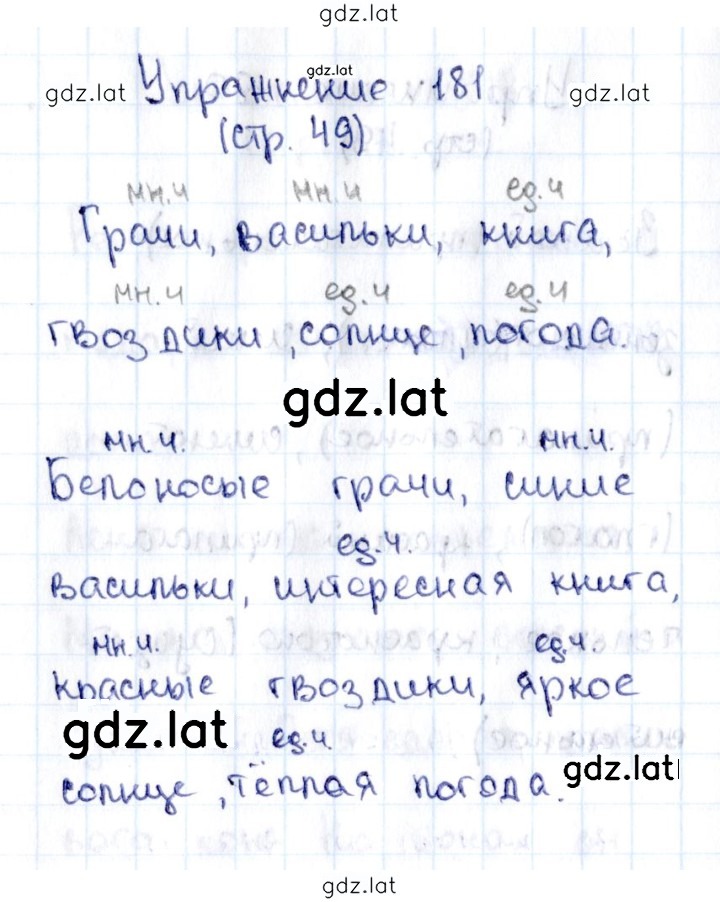 gdz.lat
gdz.lat Упражнение 181 gdz.lat
gdz.lat
(стр. 49)
мн.ч мн.ч ед.ч
Грачи, васильки, книга,
мн.ч ед.ч ед.ч
гвоздики, солнце, погода.
gdz.lat
мн.ч. мн.ч.
Белоносые грачи, синие
ед.ч.
васильки, интересная книга,
мн.ч. ед.ч.
красные гвоздики, яркое
gdz.lat ед.ч
gdz.lat
солнце, тёплая погода.
gdz.lat